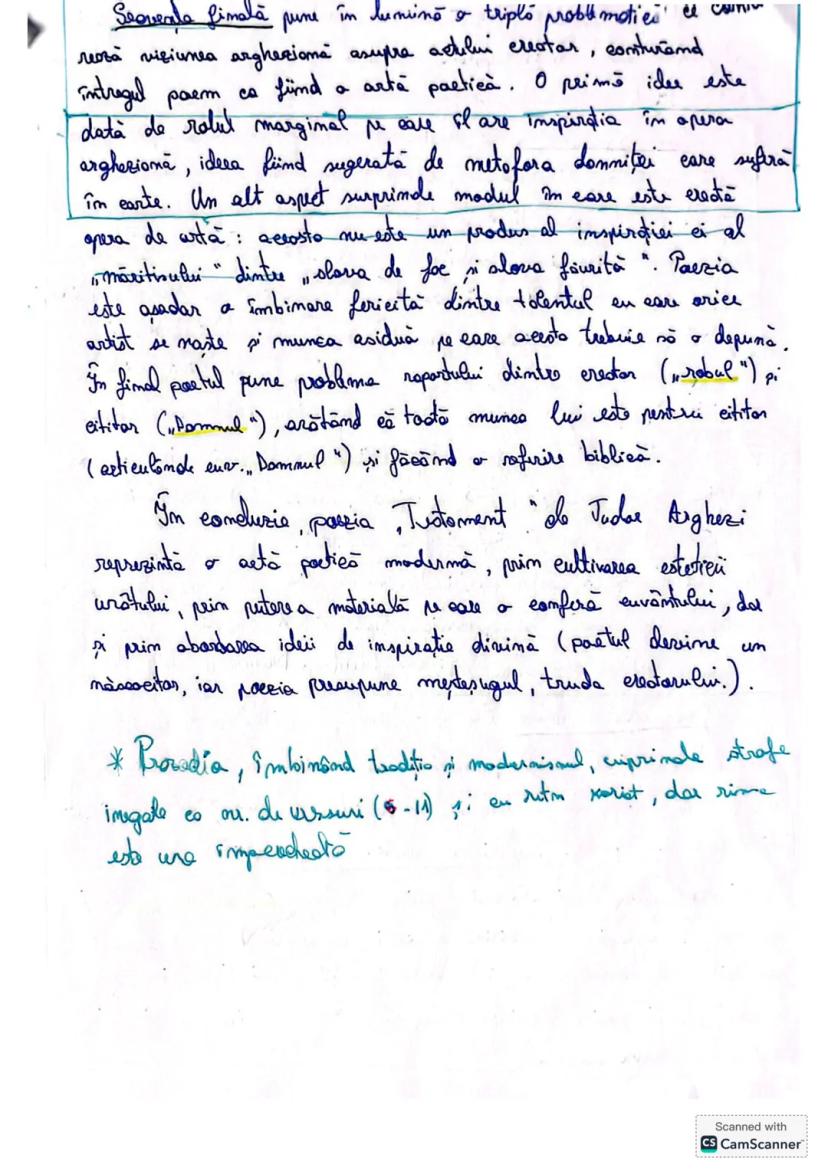 Secvența finală pune în lumină o triplă problematică ce
viziunea argheziană asupra actului creator, conturând
întregul poem ca fiind o artă poetică. O primă idee este
dată de rolul marginal pe care îl are inspirația în opera
argheziană, ideea fiind sugerată de metafora domniței care suferă
în carte. Un alt aspect surprinde modul în care este creată
opera de artă: aceasta nu este un produs al inspirației ci al
„măritișului" dintre „slova de foc și slova făurită". Poezia
este așadar o îmbinare fericită dintre talentul cu care orice
artist se naște și munca asiduă pe care acesta trebuie să o depună.
În final poetul pune problema raportului dintre creator („robul") și
cititor („Domnul"), arătând că toată munca lui este pentru cititor
(articulând cuv. „Domnul") și făcând o referire biblică.
În concluzie, poezia „Testament" de Tudor Arghezi
reprezintă o artă poetică modernă, prin cultivarea esteticii
urâtului, prin puterea materială pe care o conferă cuvântului, dar
și prin abordarea ideii de inspirație divină (poetul devine un
născocitor, iar poezia presupune meșteșugul, truda creatorului.).
* Prozodia, îmbinând tradiția și modernismul, cuprinde strofe
inegale ca nr. de versuri (6-11) și cu ritm variat, dar rima
este una împerecheată
Scanned with
CS CamScanner